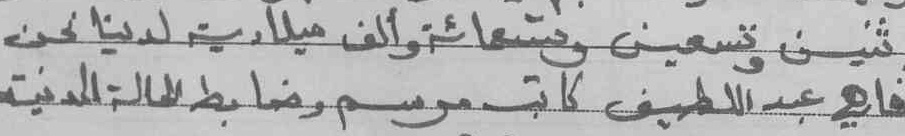 ثنين وتسعين وتسعمائة وألف ميلادية لدينا نحن
عبد اللطيف كاتب مرسم وضابط الحالة المدنية